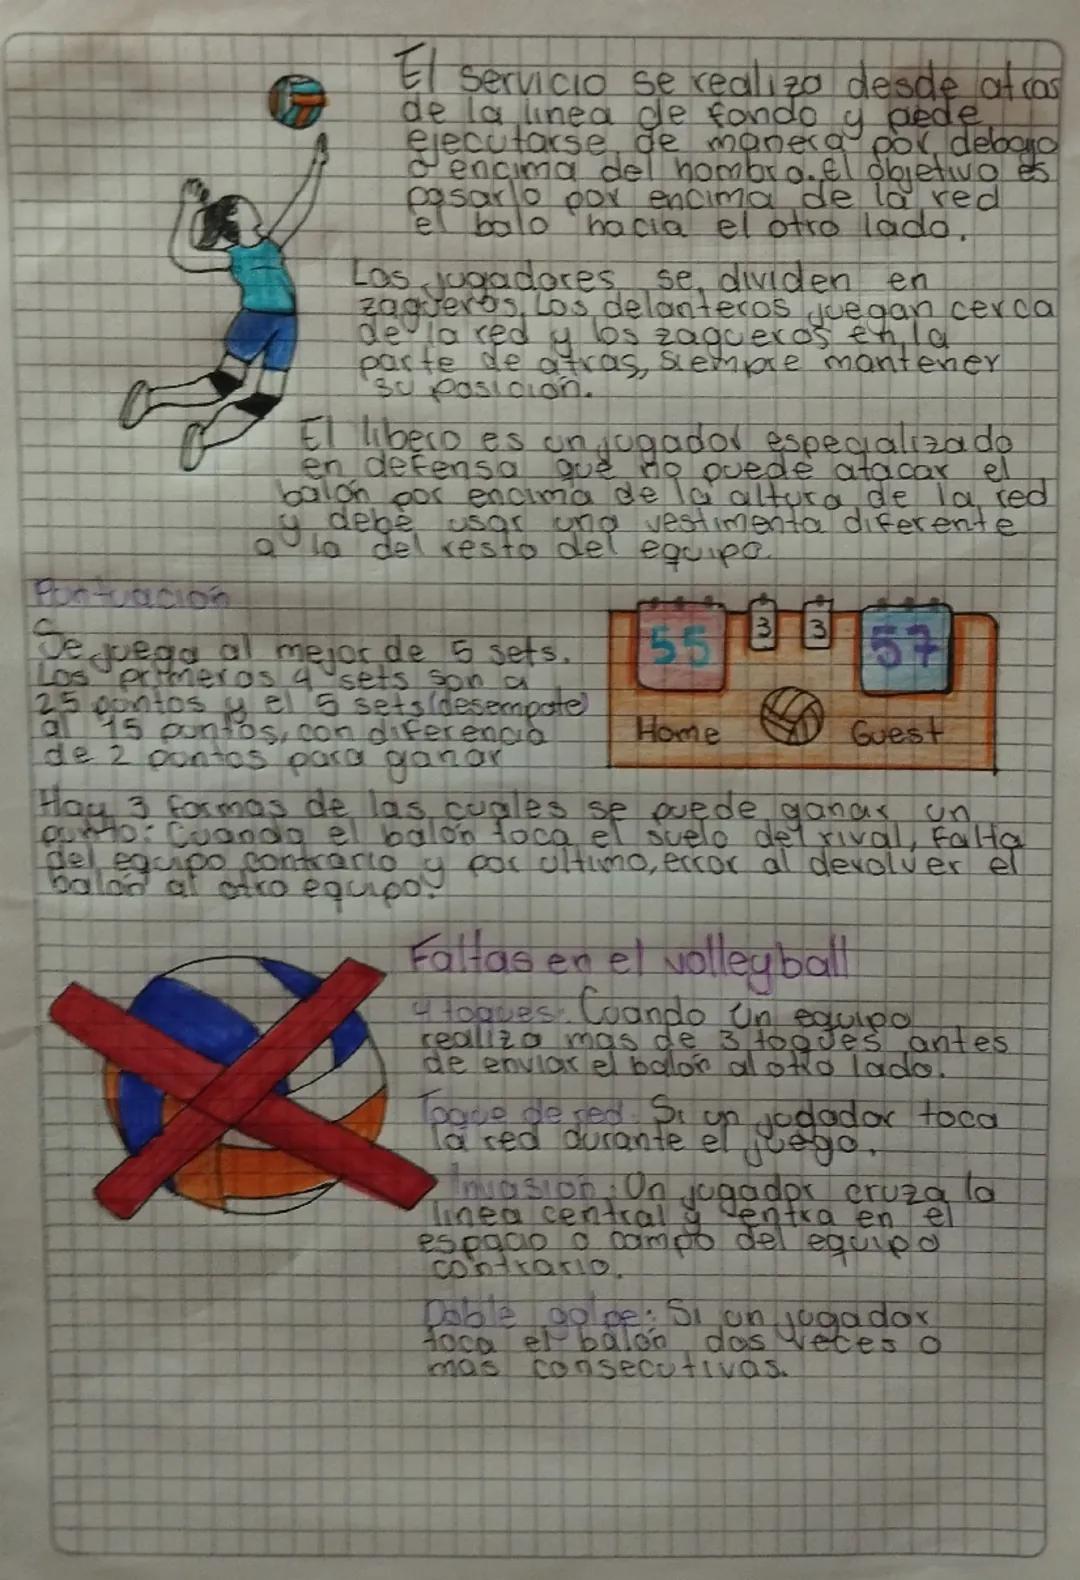 El servicio se realiza desde atras
de la linea de fondo y puede
ejecutarse de manera por debajo
o encima del hombro. El objetivo es
pasarlo por encima de la red
el balo hacia el otro lado.
Los jugadores se dividen en
zagueros, Los delanteros juegan cerca
de la red y los zagueros en la
parte de atras, siempre mantener
su posición.
El libero es un jugador especializado
en defensa que no puede atacar el
balón por encima de la altura de la red
y debe usar una vestimenta diferente
a la del resto del equipo.
Puntuación
Se juega al mejor de 5 sets.
Los primeros 4 sets son a
25 puntos y el 5 sets (desempate)
al 15 puntos, con diferencia
de 2 puntos para ganar
55 3 3 57
Home Guest
Hay 3 formas de las cuales se puede ganar un
punto: Cuando el balón toca el suelo del rival, Falta
del equipo contrario y por ultimo, error al devolver el
balón al otro equipo.
Faltas en el volleyball
4 toques: Cuando un equipo
realiza mas de 3 toques antes
de enviar el balón al otro lado.
Toque de red: Si un jugador toca
la red durante el juego.
Invasión: Un jugador cruza la
linea central y entra en el
espacio o campo del equipo
contrario.
Doble golpe: Si un jugador
toca el balón dos veces o
mas consecutivas.